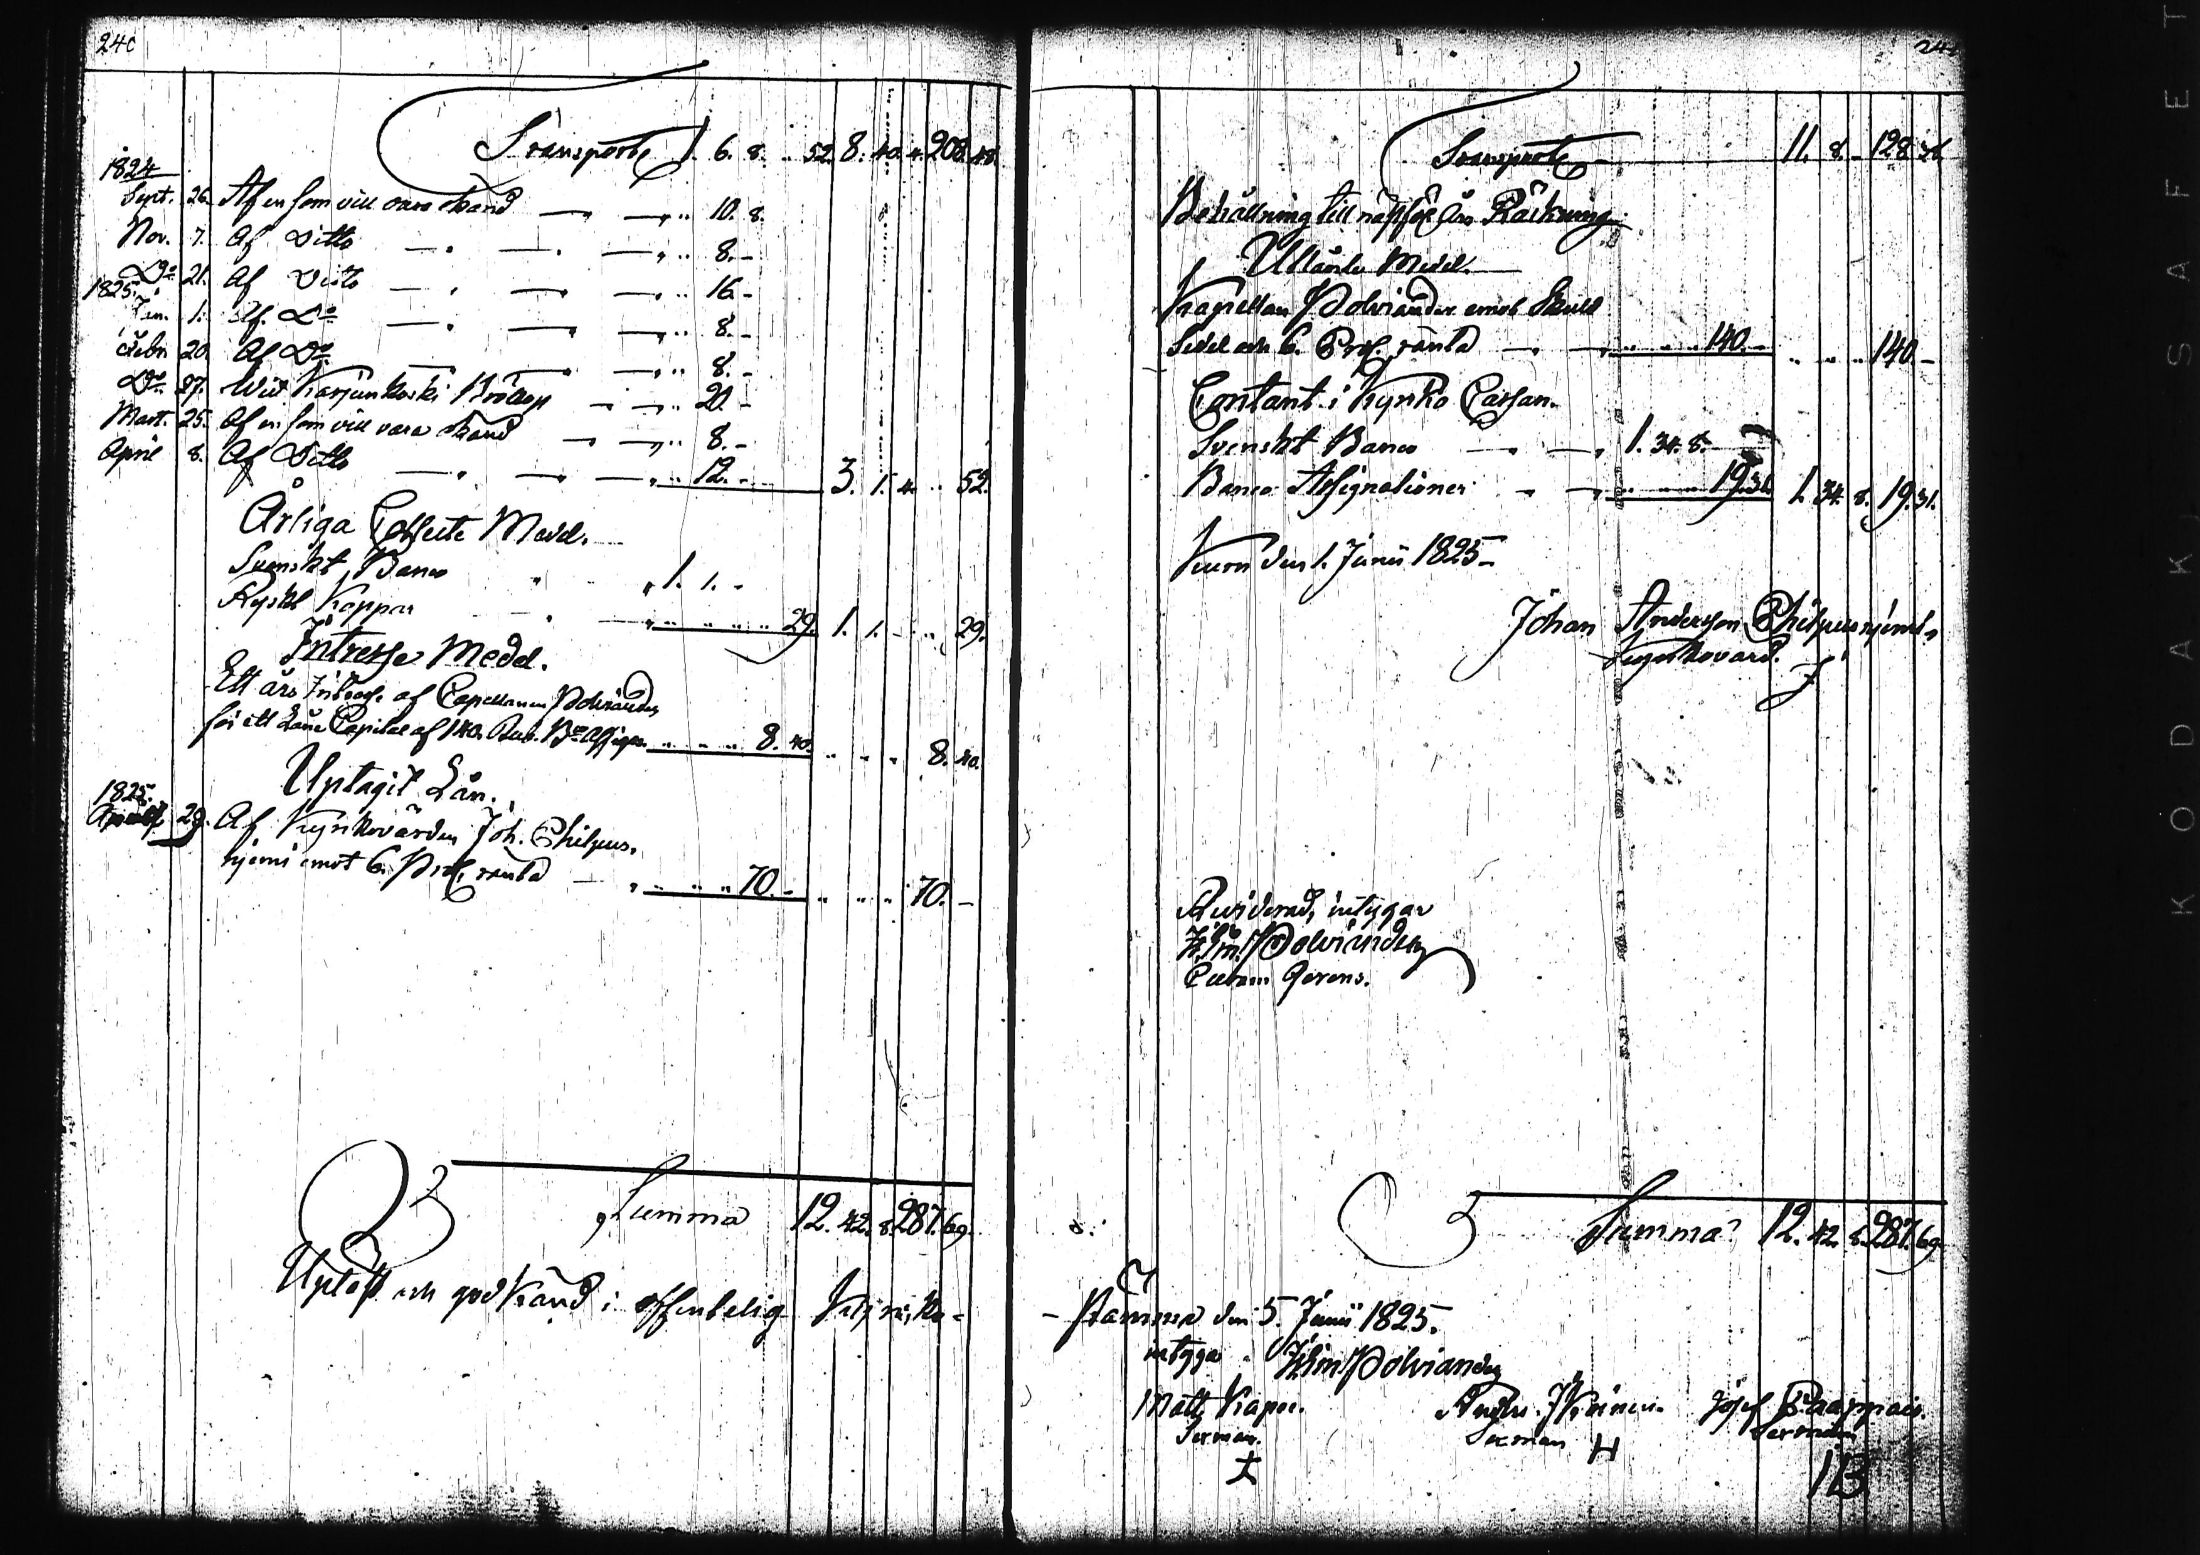 240
Transporte 1. 6. 8. .. 52. 8. 40. 4. 208. 48.
1824
Sept. 26. Af en som vill vara okänd — — „ .. 10. 8.
Nov. 7. Af Ditto — . — . — „ .. 8. -
Do 21. Af Ditto — . — — „ .. 16. -
1825.
Jan. 1. Af. Do — . — — „ .. 8. -
Febr. 20. Af Do — — — „ .. 8. -
Do 27. Wid Karjunkoski Bröllop — — „ .. 20. -
Mart. 25. Af en som vill vara okänd — — „ .. 8. -
April 8. Af Ditto — . — — „ .. 12. - 3. 1. 4. .. 52.
Årliga Collecte Medel.
Svenskt Banco „ „ 1. 1. -
Ryskt Koppar — . — „ .. .. .. .. 29. 1. 1. - .. 29.
Intresse Medel.
Ett års Intresse af Capellanen Polviander
för ett Låne Capital af 140. Rub. Bco Assign. „ .. .. .. 8. 40. .. .. .. 8. 40.
Uptagit Lån.
1825.
April 29. Af Kyrkovärden Joh. Philpus-
njemi emot 6. Prct. ränta — „ .. .. .. 70. - .. .. .. 70. -
Summa 12. 42. 8. 287. 69.
Upläst och godkänd i offentelig Kyrcko-
Transporte — 11. 8. - 128. 38.
Behållning till näste års Räkning
Utlånte Medel.
Kapellan Polviander emot Skuld
Sedel och 6. Prct. ränta — — .. .. .. 140. - .. .. .. 140. -
Contant i Kyrko Cassan.
Svenskt Banco — — „ 1. 34. 8.
Banco Assignationer — — .. .. .. 19. 31. 1. 34. 8. 19. 31.
den 1. Junii 1825 -
Johan Andersson Philpusnjemi
Kyrkovärd.
Reviderad, intygar
Polviander
Curam Gerens.
Summa 12. 42. 8. 287. 69.
- stämma den 5. Junii 1825.
intygar Polviander
Matts Sexman.
Sexman H
Josef Sexman